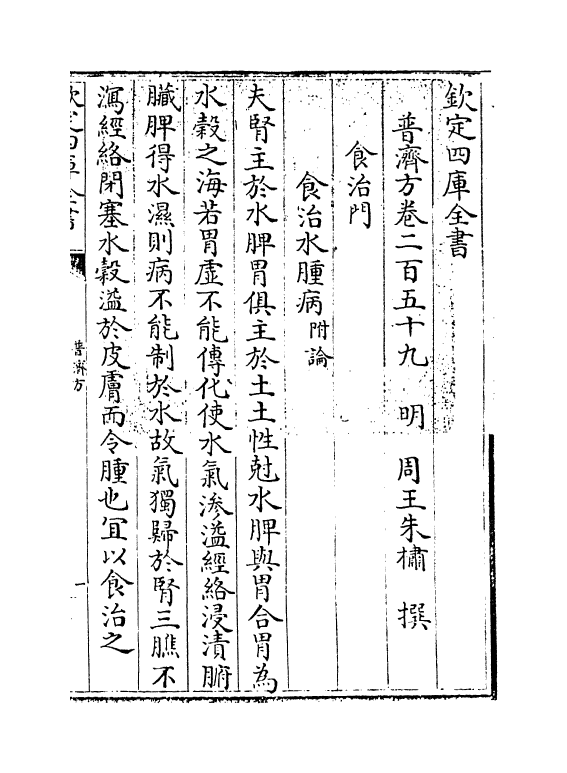 欽定四庫全書
普濟方卷二百五十九 明 周王朱橚 撰
食治門
食治水腫病附論
夫腎主於水脾胃俱主於土土性尅水脾與胃合胃為
水穀之海若胃虛不能傳化使水氣渗溢經絡浸漬腑
臟脾得水濕則病不能制於水故氣獨歸於腎三膲不
瀉經絡閉塞水穀溢於皮膚而令腫也宜以食治之
欽定四庫全書
普濟方
一